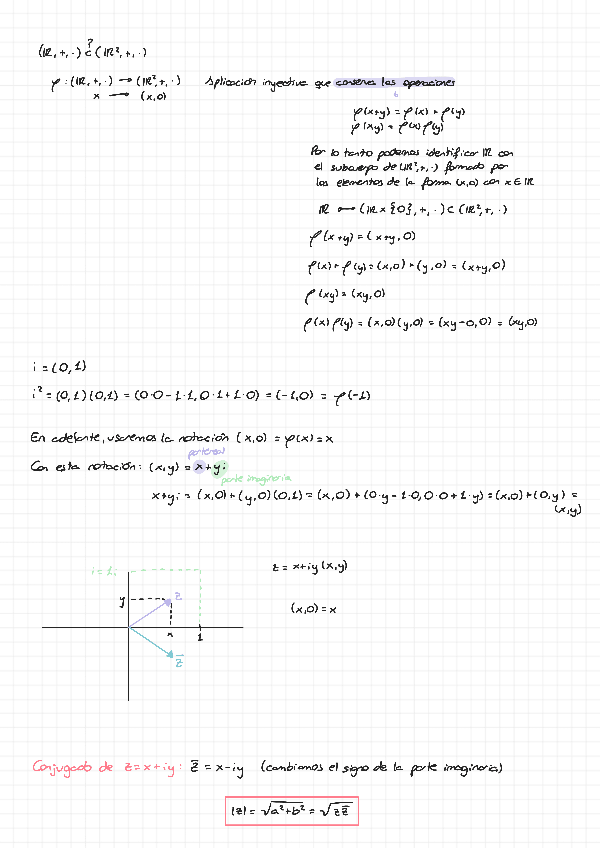 (ℝ, +, ·) ?⊂ (ℝ², +, ·)
φ : (ℝ, +, ·) → (ℝ², +, ·)   Aplicación inyectiva que conserva las operaciones
x → (x,0)
φ(x+y) = φ(x) + φ(y)
φ(xy) = φ(x) φ(y)
Por lo tanto podemos identificar ℝ con
el subcuerpo de (ℝ², +, ·) formado por
los elementos de la forma (x,0) con x ∈ ℝ
ℝ ⟷ (ℝ x {0}, +, ·) ⊂ (ℝ², +, ·)
φ(x+y) = (x+y, 0)
φ(x) + φ(y) = (x,0) + (y,0) = (x+y,0)
φ(xy) = (xy,0)
φ(x) φ(y) = (x,0)(y,0) = (xy-0,0) = (xy,0)
i = (0,1)
i² = (0,1)(0,1) = (0·0-1·1, 0·1+1·0) = (-1,0) = φ(-1)
En adelante, usaremos la notación (x,0) = φ(x) = x
parte real
Con esta notación: (x,y) = x+yi
parte imaginaria
x+yi = (x,0) + (y,0)(0,1) = (x,0) + (0·y-1·0, 0·0+1·y) = (x,0) + (0,y) =
(x,y)
i = 1·i
z = x+iy (x,y)
y
z
(x,0) = x
x
1
z̄
Conjugado de z = x+iy : z̄ = x-iy (cambiamos el signo de la parte imaginaria)
|z| = √(a²+b²) = √(z z̄)